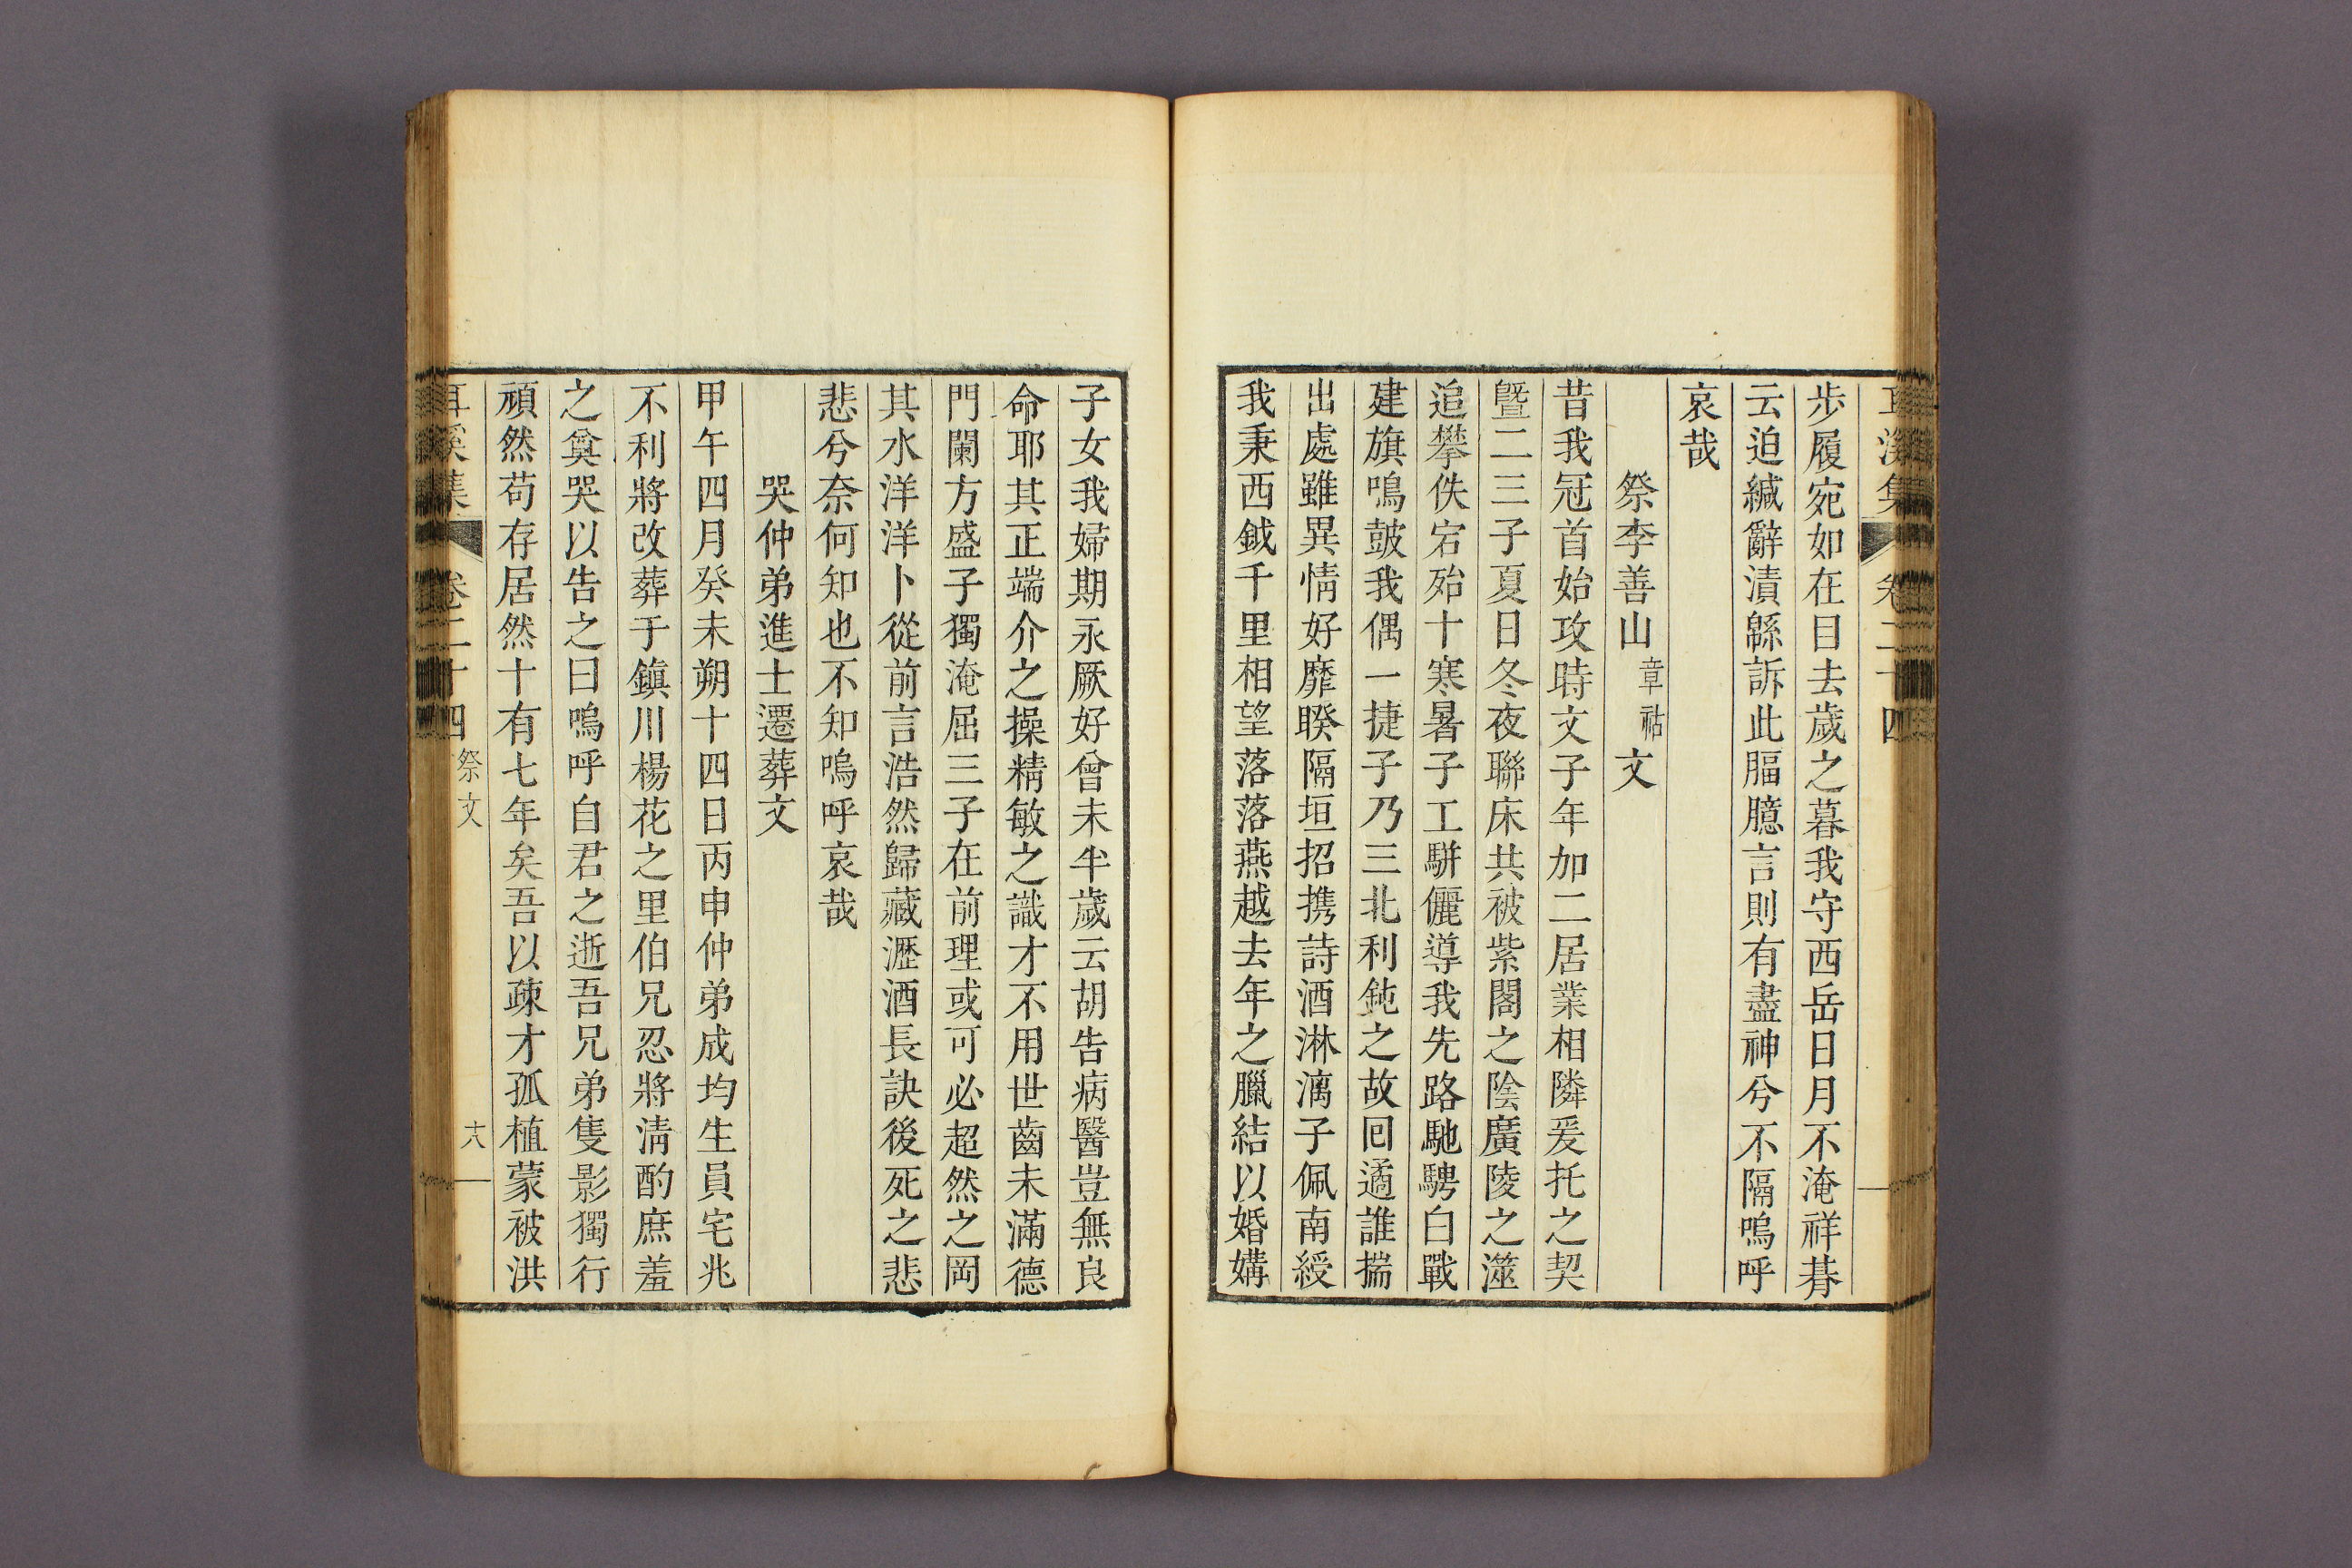 耳溪集 卷二十四
步履宛如在目去歲之暮我守西岳日月不淹祥朞
云迫緘辭漬緜訴此腷臆言則有盡神兮不隔嗚呼
哀哉
祭李善山章祜文
昔我冠首始攻時文子年加二居業相隣爰托之契
曁二三子夏日冬夜聯床共被紫閣之陰廣陵之澨
追攀佚宕殆十寒暑子工駢儷導我先路馳騁白戰
建旗鳴鼓我偶一捷子乃三北利鈍之故囘遹誰揣
出處雖異情好靡睽隔垣招携詩酒淋漓子佩南綬
我秉西鉞千里相望落落燕越去年之臘結以婚媾
子女我婦期永厥好曾未半歲云胡告病醫豈無良
命耶其正端介之操精敏之識才不用世齒未滿德
門闌方盛子獨淹屈三子在前理或可必超然之岡
其水洋洋卜從前言浩然歸藏瀝酒長訣後死之悲
悲兮奈何知也不知嗚呼哀哉
哭仲弟進士遷葬文
甲午四月癸未朔十四日丙申仲弟成均生員宅兆
不利將改葬于鎭川楊花之里伯兄忍將淸酌庶羞
之奠哭以告之曰嗚呼自君之逝吾兄弟隻影獨行
頑然苟存居然十有七年矣吾以疎才孤植蒙被洪
耳溪集 卷二十四 祭文 十八